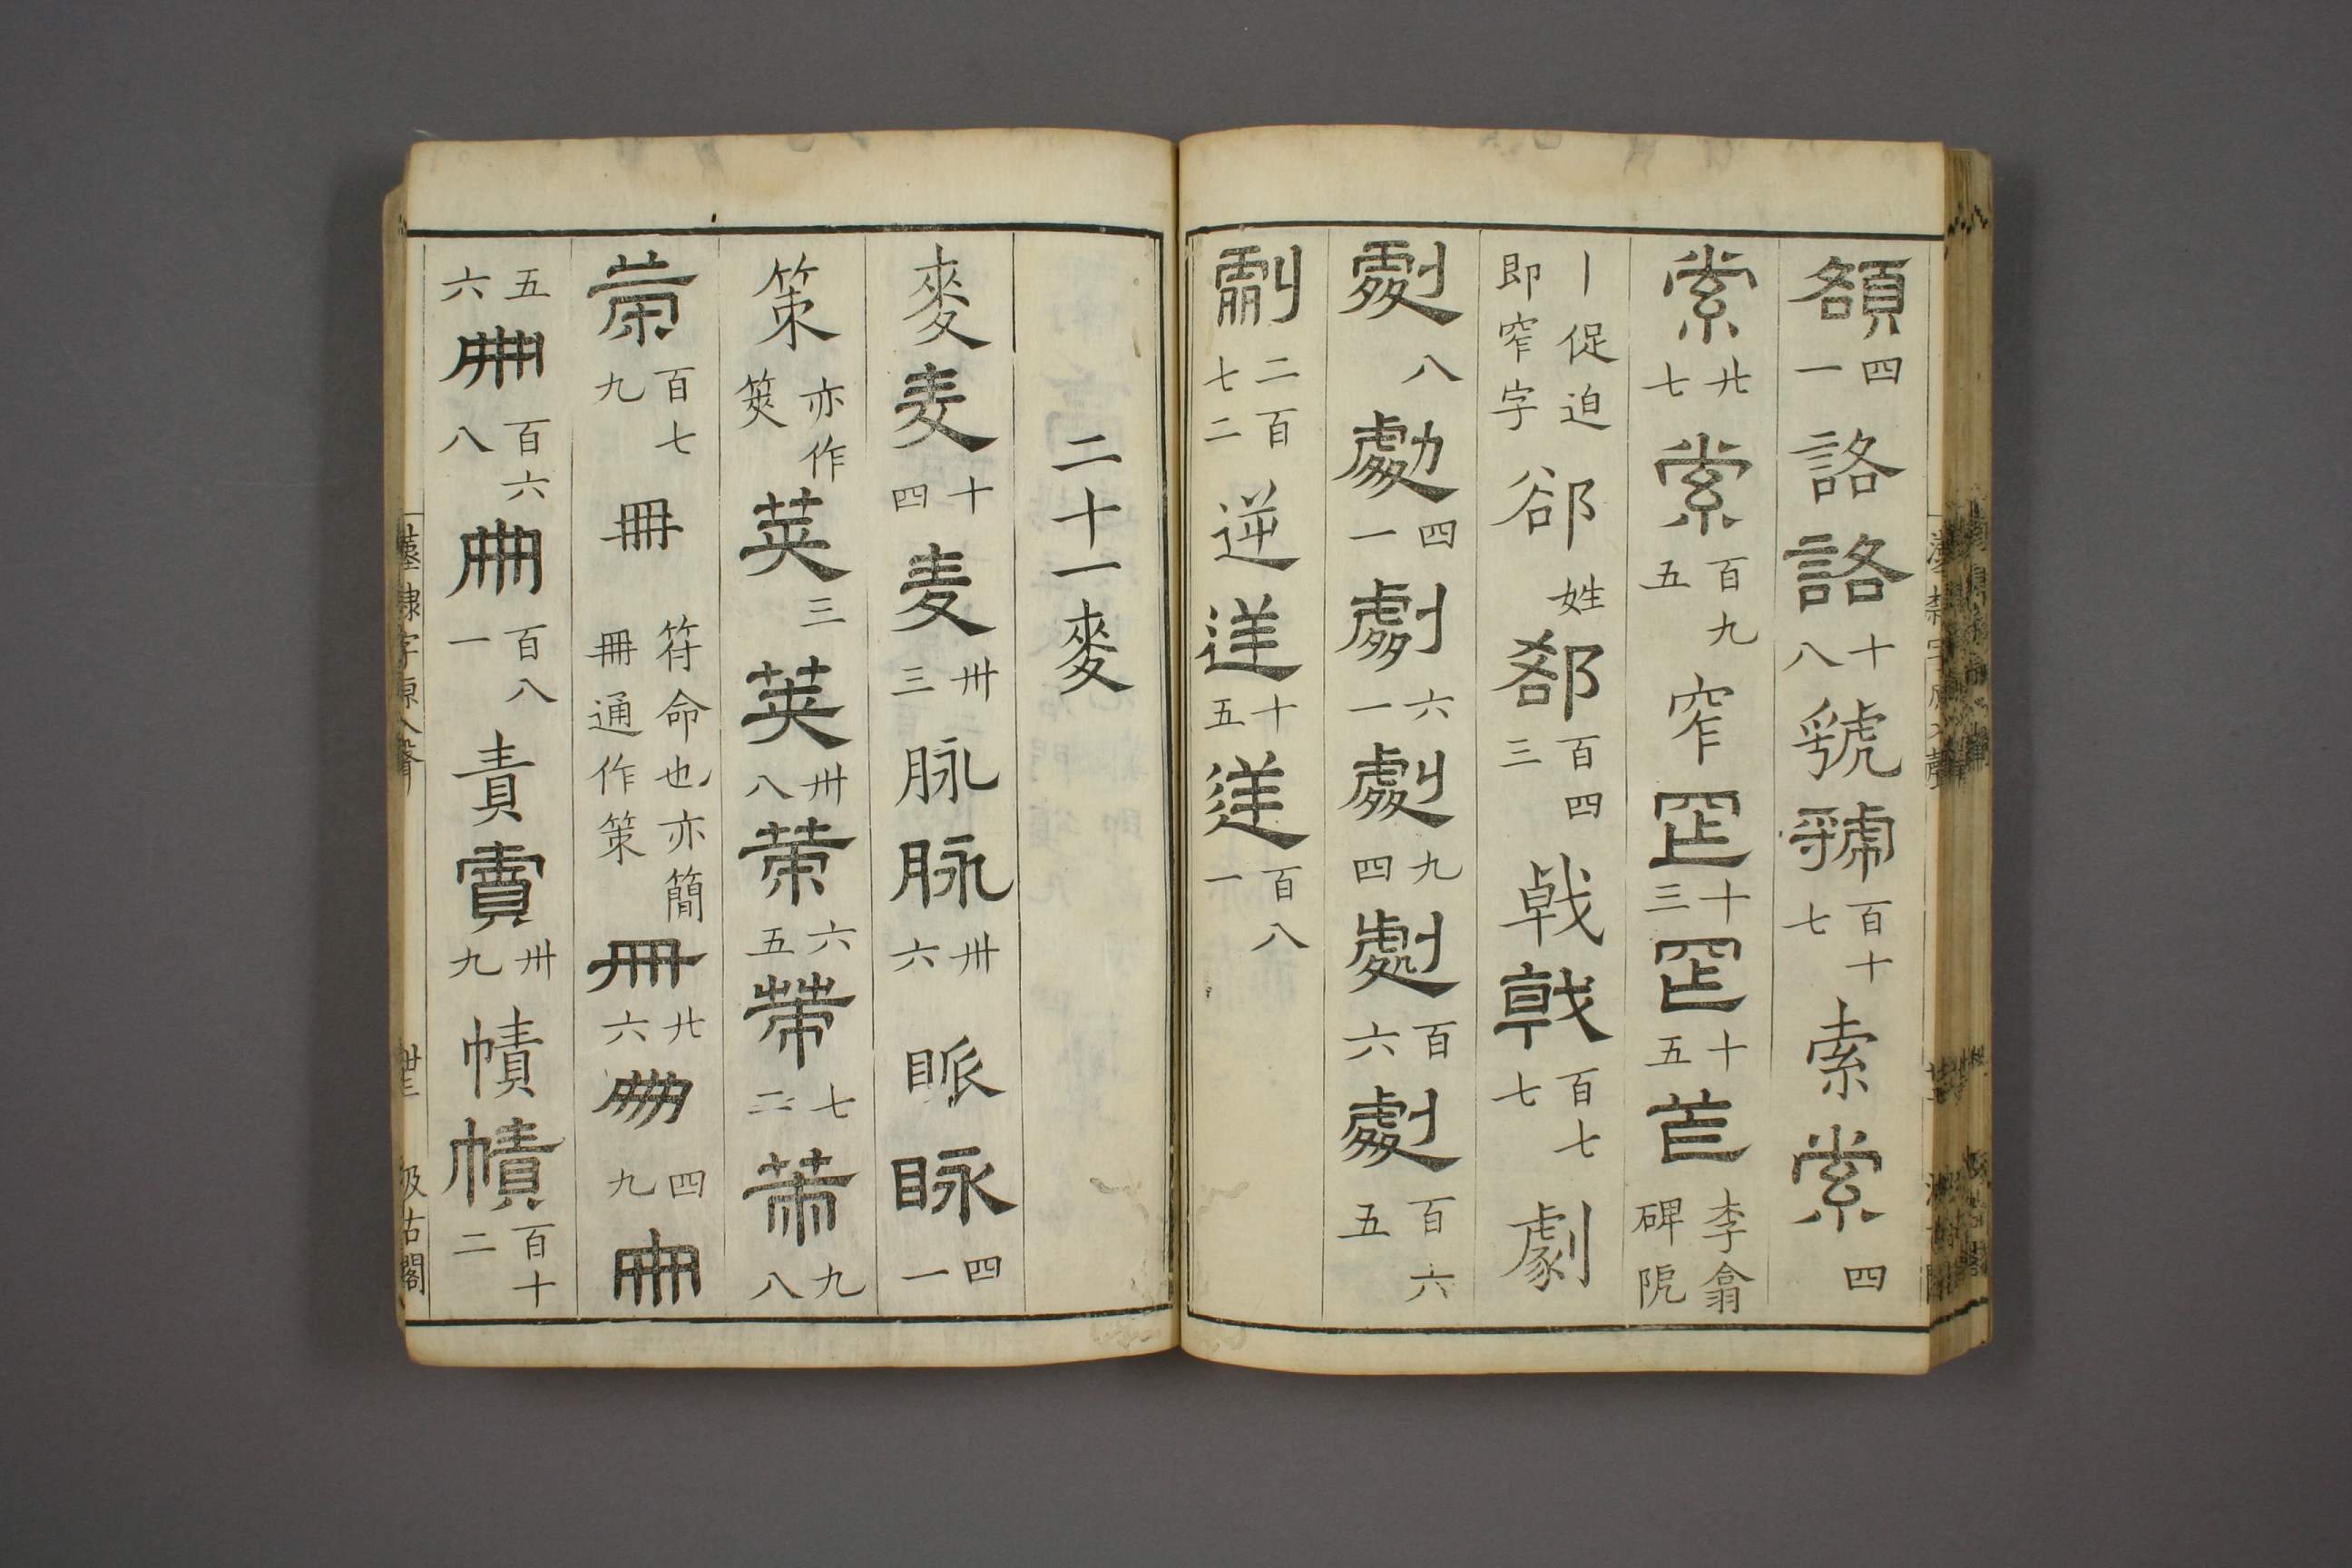 額四一詻詻十八虢虢百十七索索四
索廿七索百九五窄𦊆十三𦊆十五苲李翕碑阸
丨促迫即窄字郤姓郤百四三戟戟百七七劇
劇八劇四一劇六一劇九四劇百六劇百六五
劇二百七二逆逆十五逆百八一
二十一麥
麥麦十四麦卅三脉脉卅六眽眽四一
策亦作筴筴三筴卅八策六五策七二策九八
策百七九冊符命也亦簡冊通作策冊廿六冊四九冊
五六冊百六八冊百八一責責卅九幘幘百十二
漢隸字原入聲
汲古閣